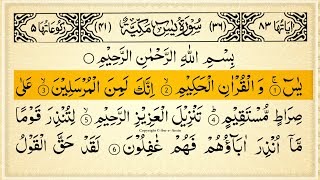 اٰيَاتُهَا ٨٣ (٣٦) سُوْرَةُ يٰسٓ مَكِّيَّةٌ (٤١) رُكُوْعَاتُهَا ٥
بِسْمِ اللّٰهِ الرَّحْمٰنِ الرَّحِيْمِ ○
يٰسٓ ۚ ① وَ الْقُرْاٰنِ الْحَكِيْمِ ② اِنَّكَ لَمِنَ الْمُرْسَلِيْنَ ③ عَلٰى
صِرَاطٍ مُّسْتَقِيْمٍ ④ تَنْزِيْلَ الْعَزِيْزِ الرَّحِيْمِ ⑤ لِتُنْذِرَ قَوْمًا
مَّاۤ اُنْذِرَ اٰبَآؤُهُمْ فَهُمْ غٰفِلُوْنَ ⑥ لَقَدْ حَقَّ الْقَوْلُ